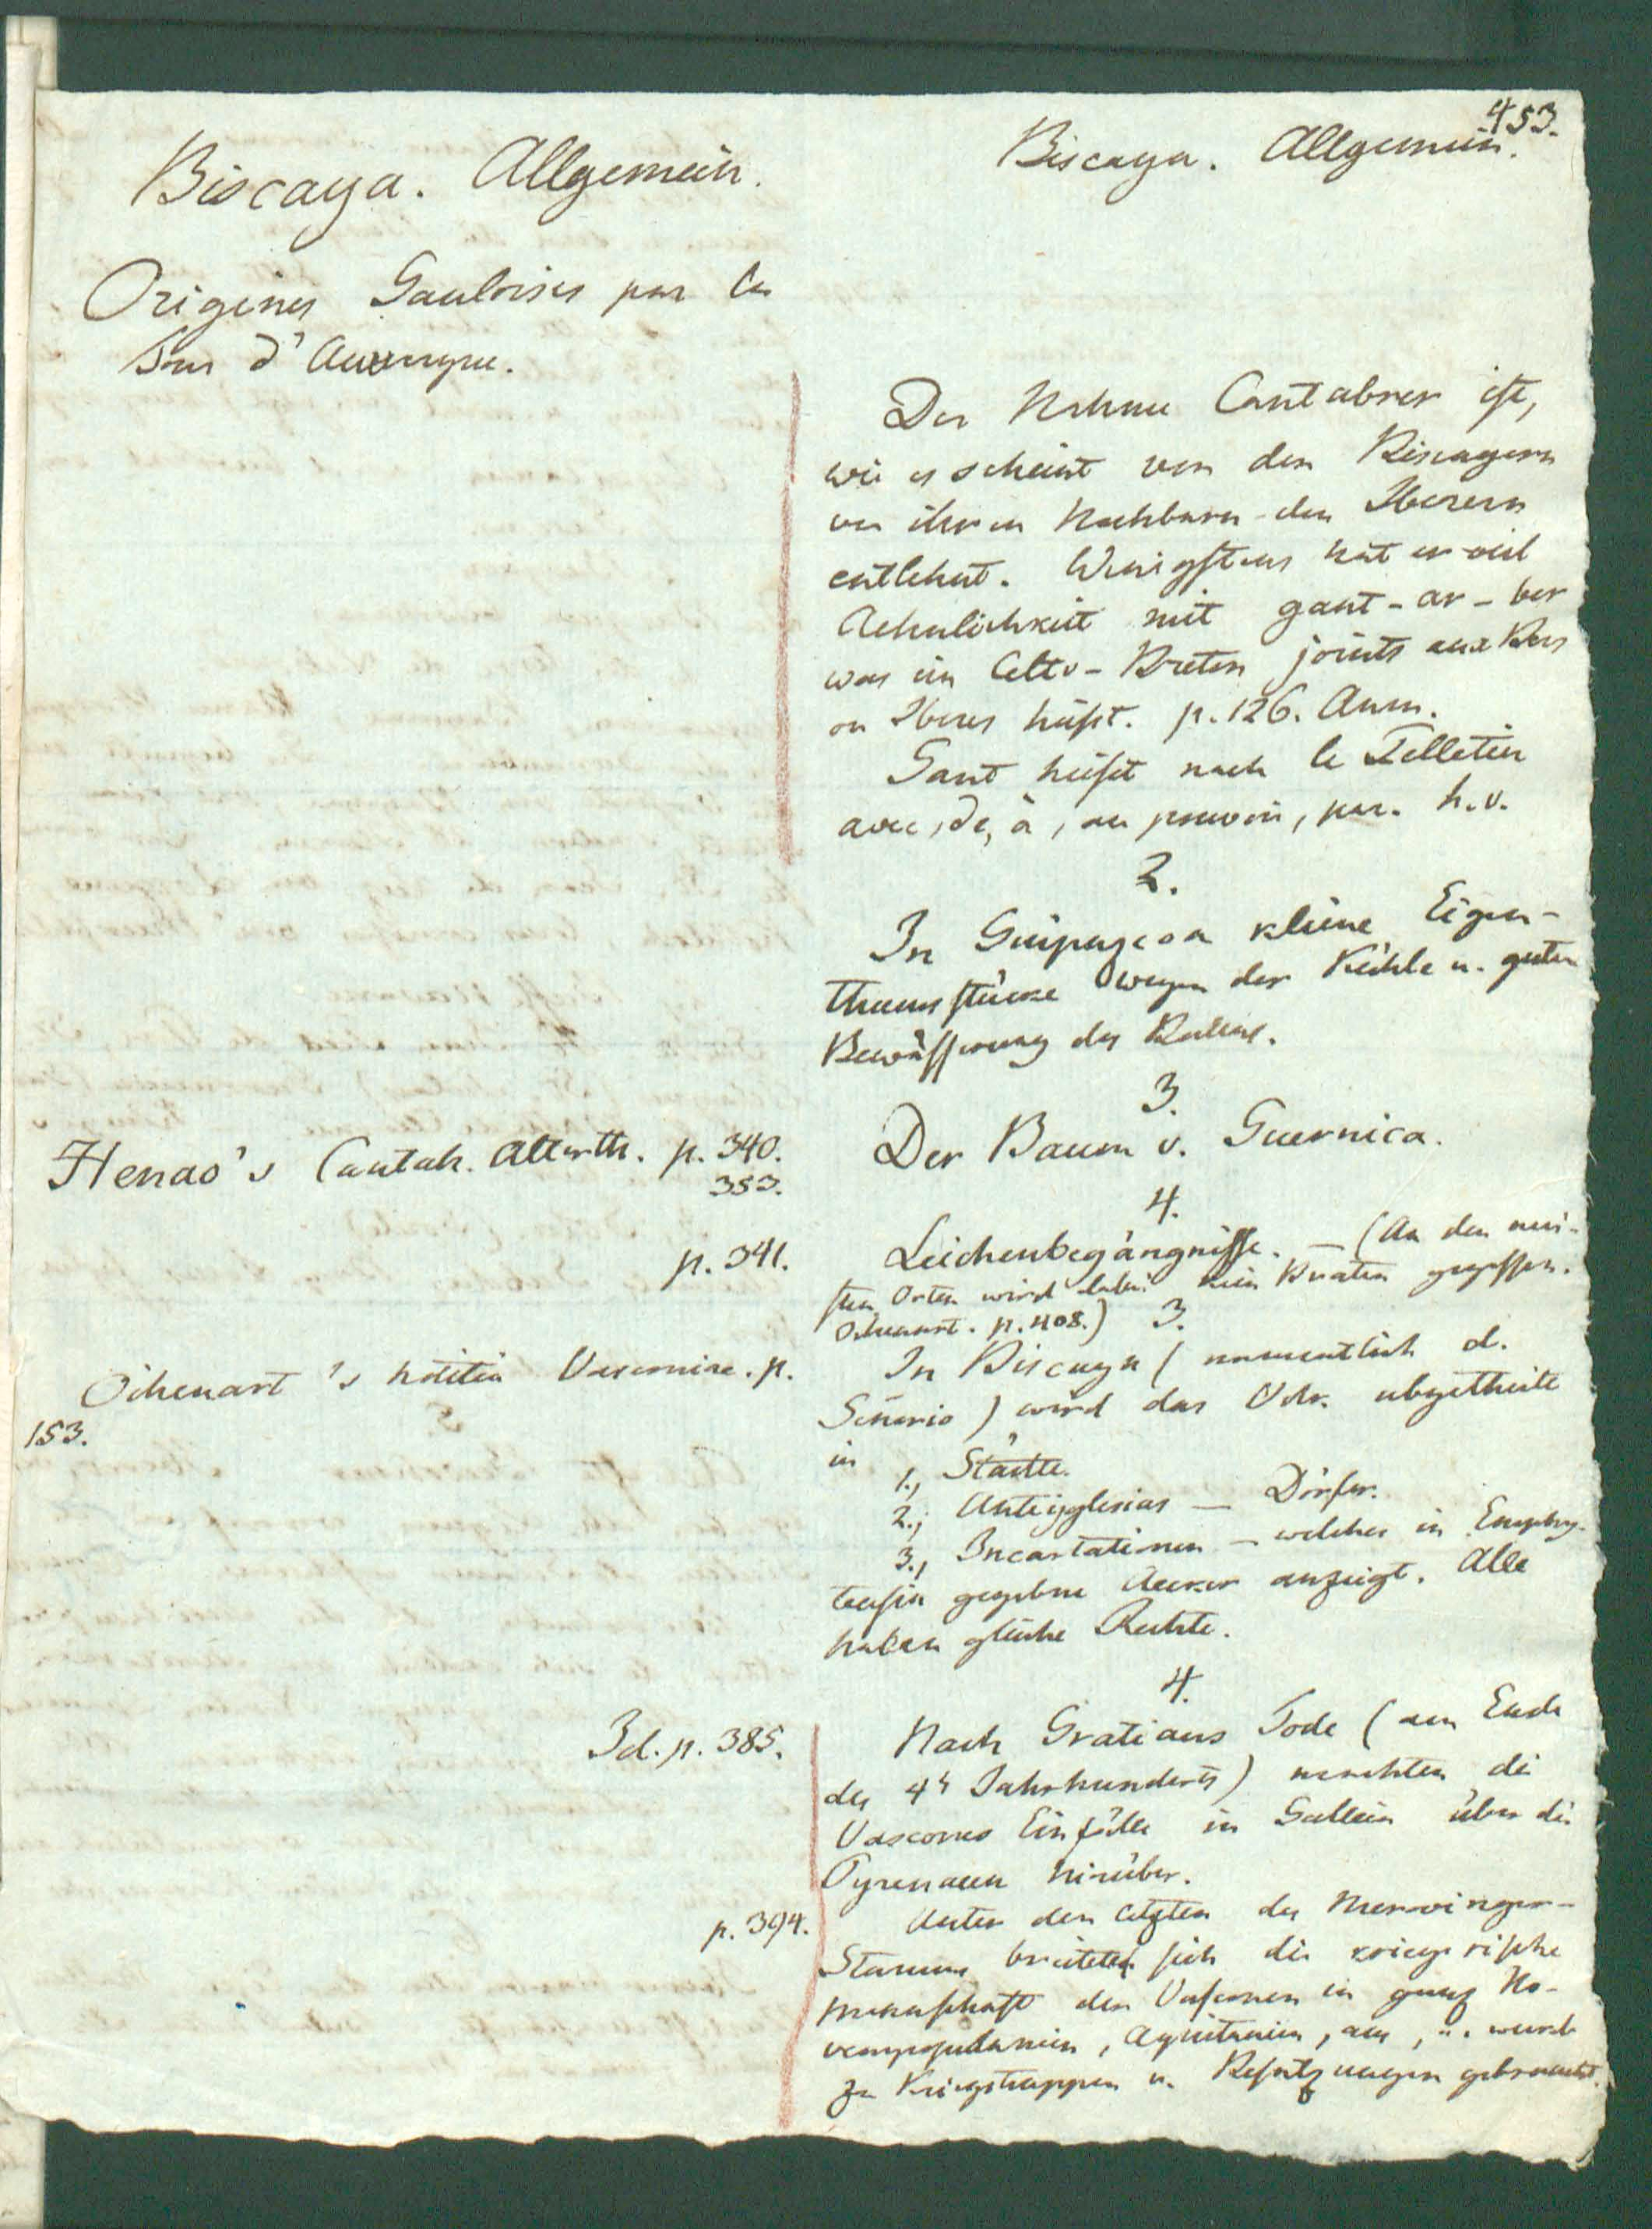 453.
Biscaya. Allgemein.
Biscaya. Allgemein.
Origines Gauloises par la
Tour d'Auvergne.
Der Nahme Cantabrer ist,
wie es scheint von den Biscayern
von ihren Nachbarn den Iberern
entlehnt. Wenigstens hat er viel
Aehnlichkeit mit gant-ar-ber
was im Celto-Breton joints aux Bers
ou Iberes heißt. p. 126. Anm.
Gant heißt nach le Pelletier
avec, de, à, au pouvoir, par. h. v.
2.
In Guipuzcoa kleine Eigen-
thumsstücke wegen der Kühle u. guten
Bewässerung des Bodens.
3.
Henao's Cantab. Alterth. p. 340.
353.
Der Baum v. Guernica.
4.
p. 341.
Leichenbegängnisse. — (An den mei-
sten Orten wird dabei kein Braten gegessen.
Oihenart. p. 408.)
3.
Oihenart's notitia Vasconiae. p.
153.
In Biscaya (namentlich d.
Señorio) wird das Volk abgetheilt
in
1., Städte.
2., Anteiglesias — Dörfer.
3., Incartationen — welches in Emphy-
teusin gegebne Aecker anzeigt. Alle
haben gleiche Rechte.
4.
Id. p. 385.
Nach Gratians Tode (am Ende
des 4t Jahrhunderts) machten die
Vascones Einfälle in Gallien über die
Pyrenaeen hinüber.
p. 394.
Unter den letzten des Merovinger-
Stamms breitete sich die kriegerische
Mannschaft der Vasconen in ganz No-
vempopulanien, Aquitanien, aus, u. wurde
zu Kriegstruppen u. Besatzungen gebraucht.